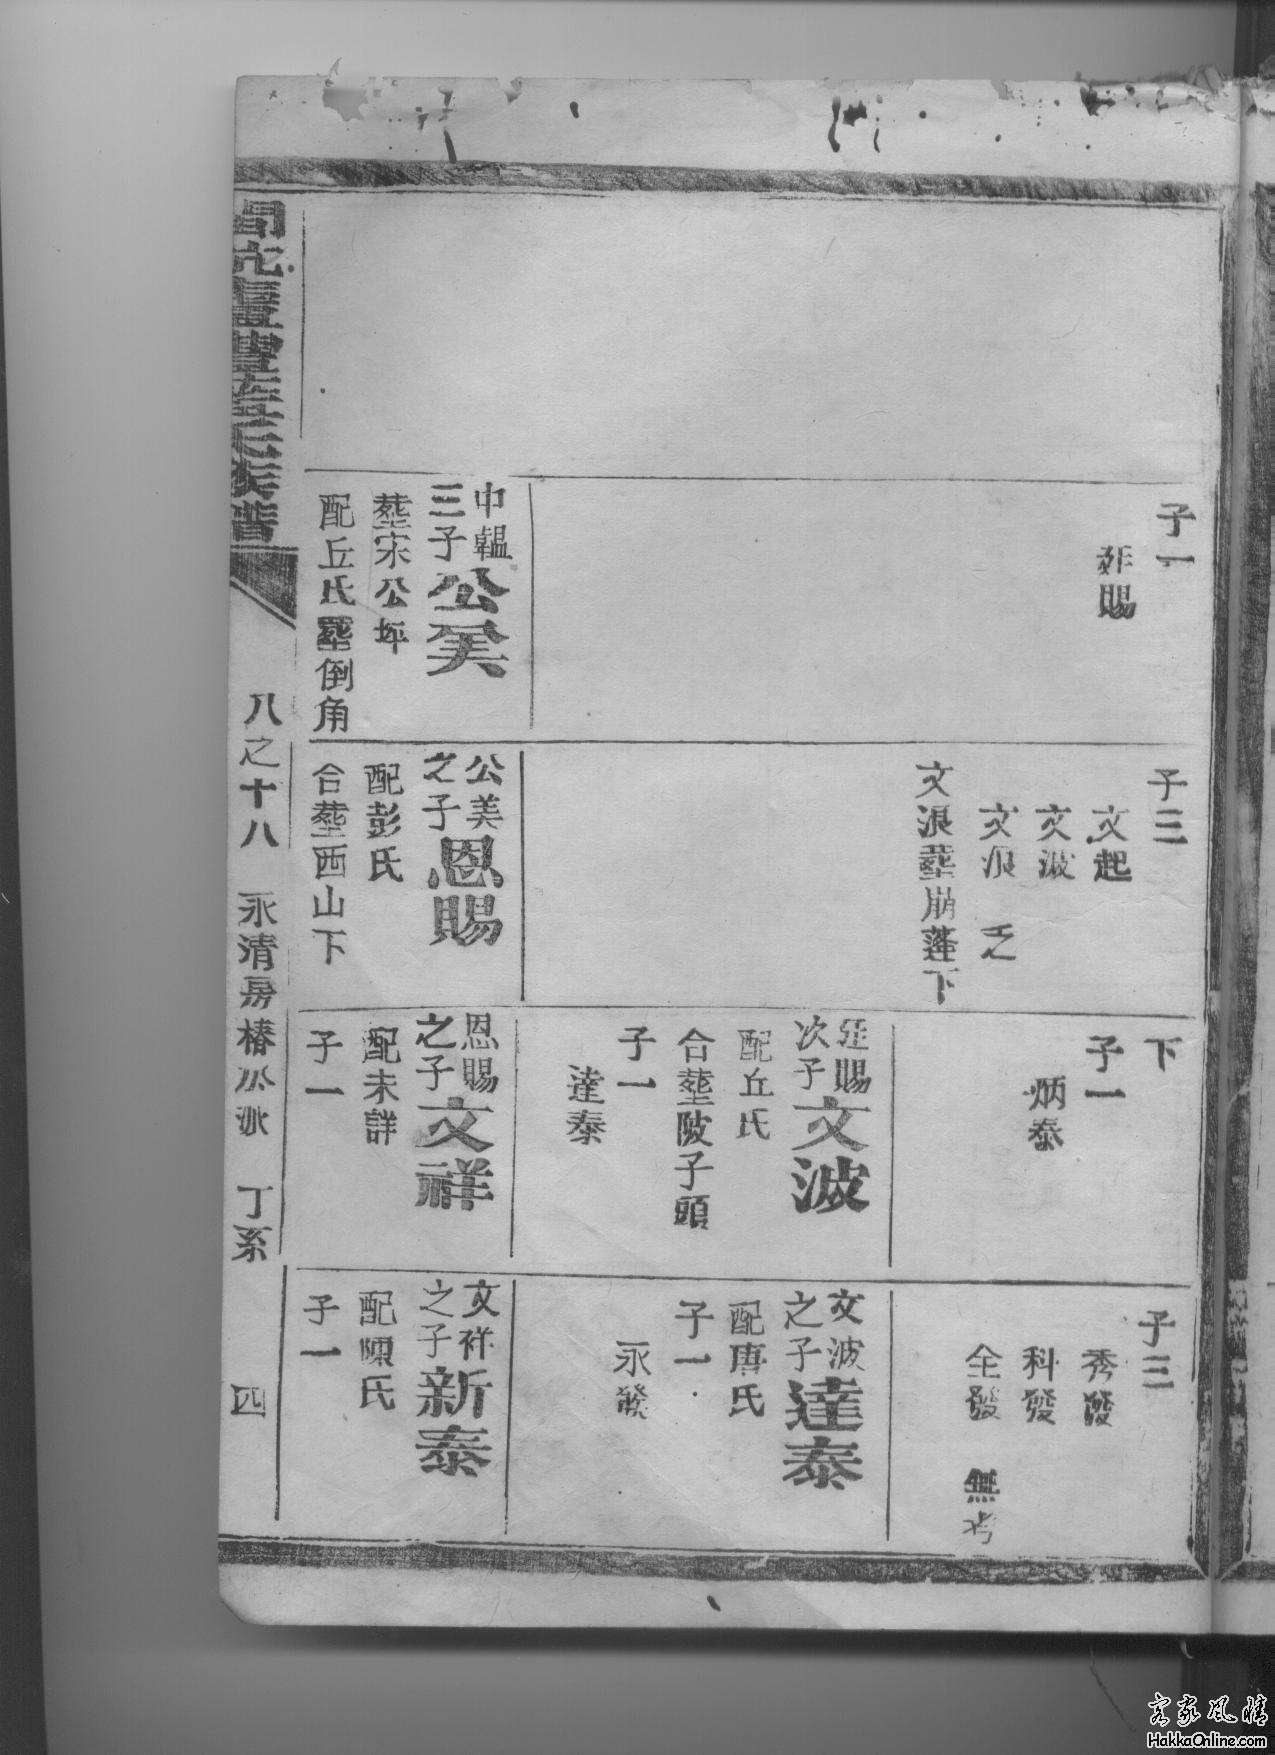 子一
賜
中韞
三子
公美
塟宋公坪
配丘氏塟倒角
子三
文起
文波
文浪 乏
文浪塟崩蓬下
公美
之子
恩賜
配彭氏
合塟西山下
下
子一
炳泰
廷賜
次子
文波
配丘氏
合塟陂子頭
子一
達泰
恩賜
之子
文祥
配未詳
子一
子三
秀發
科發
全發 無考
文波
之子
達泰
配唐氏
子一
永發
文祥
之子
新泰
配陳氏
子一
豐藍氏族譜
八之十八 永清房椿 派 丁系
四
客家風情
HakkaOnline.com